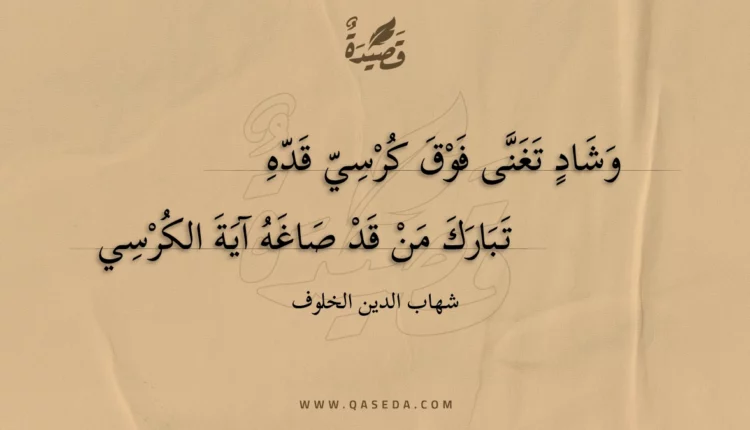 قَصِيدَةٌ
وَشَادٍ تَغَنَّى فَوْقَ كُرْسِيّ قَدّهِ
تَبَارَكَ مَنْ قَدْ صَاغَهُ آيَةَ الكُرْسِي
شهاب الدين الخلوف
WWW.QASEDA.COM